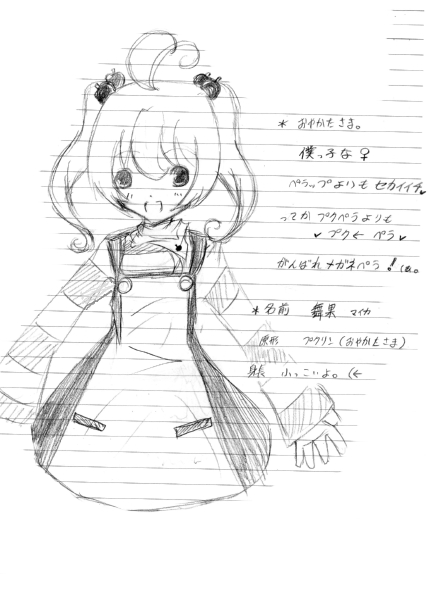 * おやかたさま。
僕っ子な♀
ペラップよりも セカイイチ♥
ってか プクペラよりも
♥ プク← ペラ♥
がんばれメガネペラ!
* 名前 舞果 マイカ
原形 プクリン(おやかたさま)
身長 小っこいよ。(←